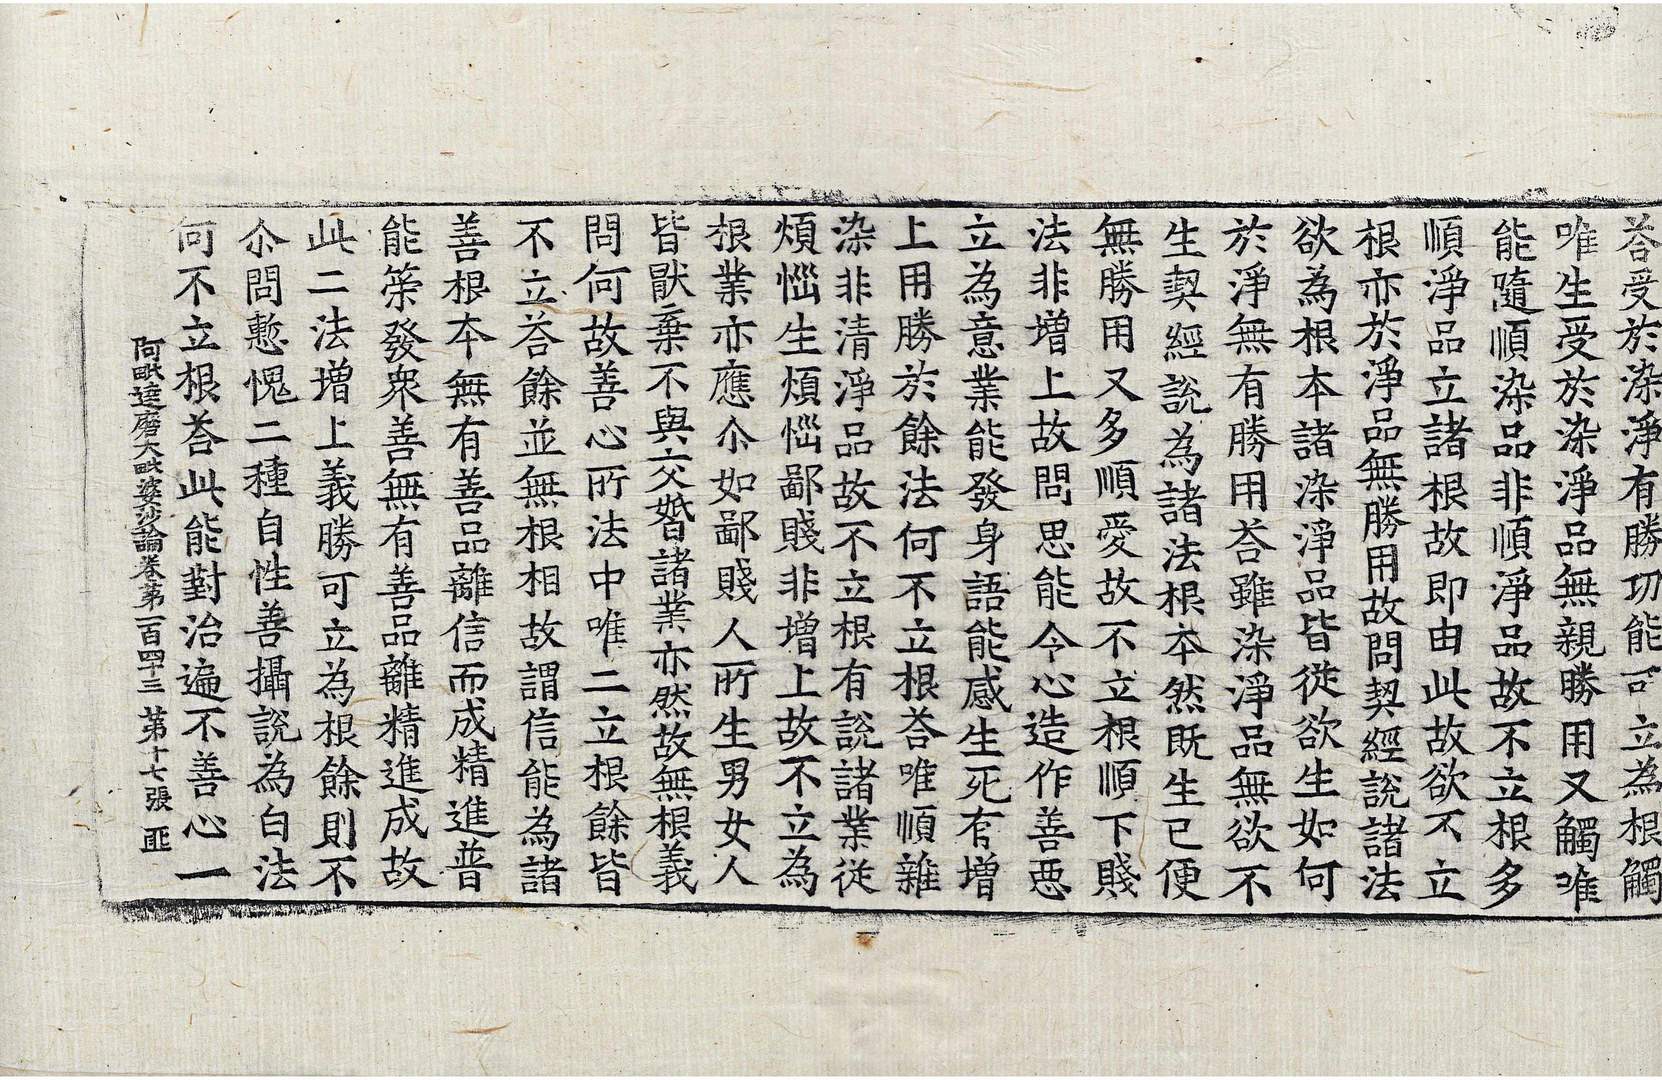 荅受於染淨有勝切能可立為根觸
唯生受於染淨品無親勝用又觸唯
能隨順染品非順淨品故不立根多
順淨品立諸根故即由此故欲不立
根亦於淨品無勝用故問契經說諸法
欲為根本諸染淨品皆從欲生如何
於淨無有勝用荅雖染淨品無欲不
生契經說為諸法根本然既生已便
無勝用又多順愛故不立根順下賤
法非增上故問思能令心造作善惡
立為意業能發身語能感生死有增
上用勝於餘法何不立根荅唯順雜
染非清淨品故不立根有說諸業從
煩惱生煩惱鄙賤非增上故不立為
根業亦應尒如鄙賤人所生男女人
皆猒棄不與交婚諸業亦然故無根義
問何故善心所法中唯二立根餘皆
不立荅餘並無根相故謂信能為諸
善根本無有善品離信而成精進普
能策發衆善無有善品離精進成故
此二法增上義勝可立為根餘則不
尒問慙愧二種自性善攝說為白法
何不立根荅此能對治遍不善心一
阿毗達磨大毗婆沙論卷第一百四十三 第十七張 匪